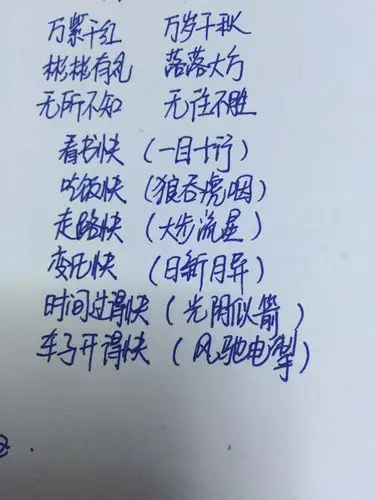 万紫千红 万岁千秋
彬彬有礼 落落大方
无所不知 无往不胜
看书快（一目十行）
吃饭快（狼吞虎咽）
走路快（大步流星）
变化快（日新月异）
时间过得快（光阴似箭）
车子开得快（风驰电掣）